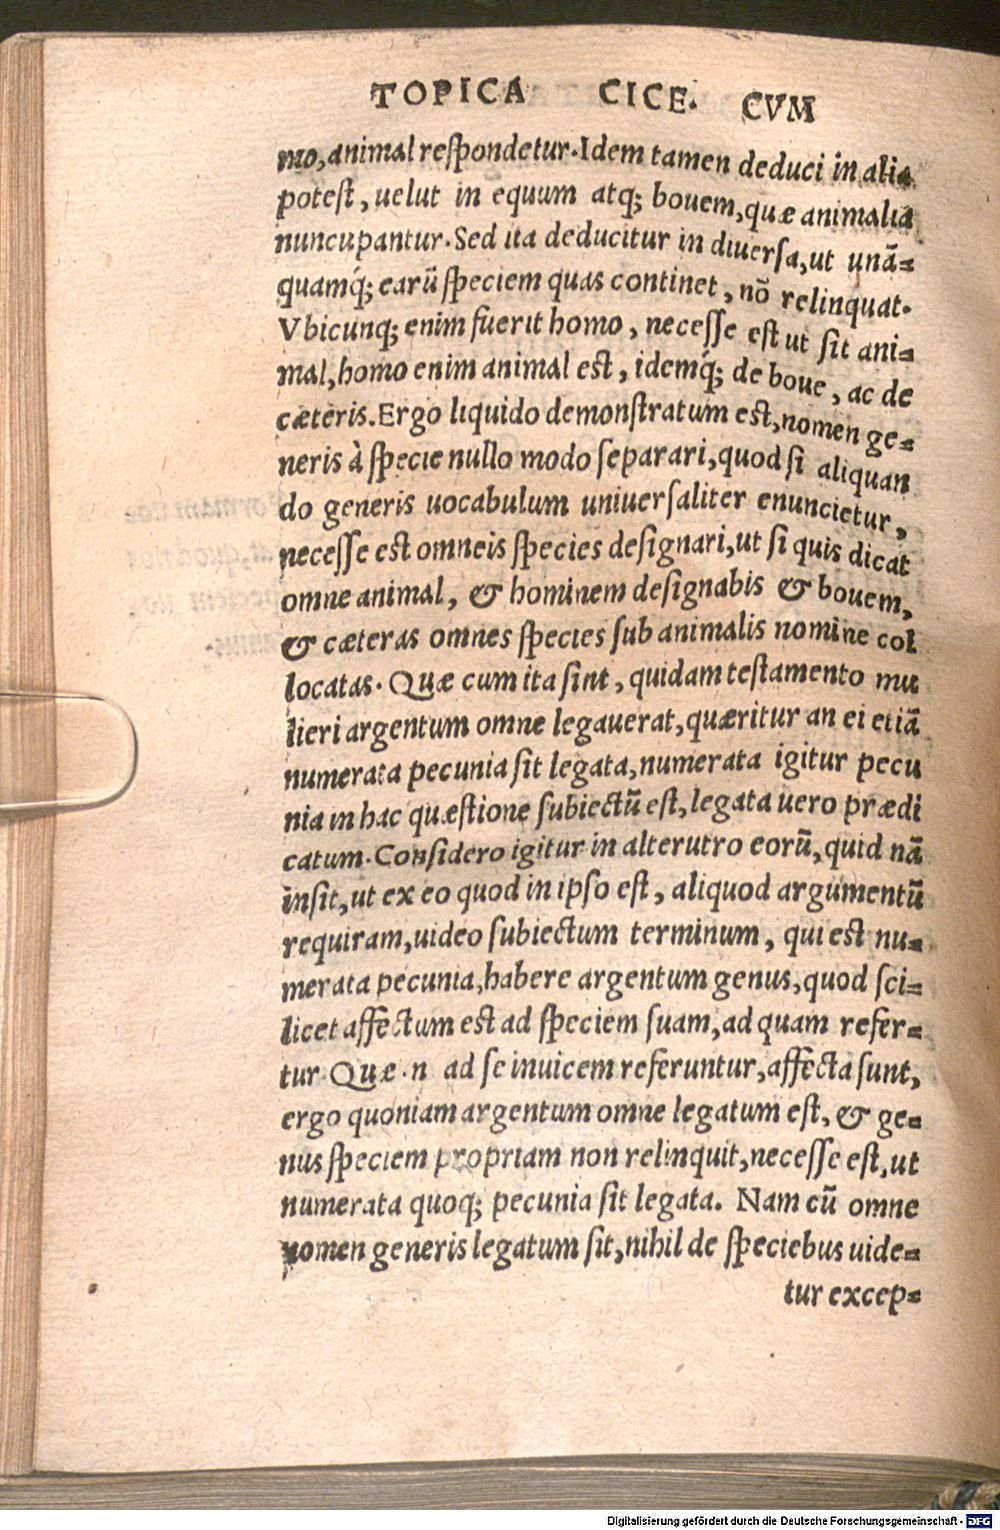 TOPICA CICE. CVM
mo, animal respondetur. Idem tamen deduci in alia
potest, uelut in equum atq; bouem, quæ animalia
nuncupantur. Sed ita deducitur in diuersa, ut unã-
quamq́; earũ speciem quas continet, nõ relinquat.
Vbicunq; enim fuerit homo, necesse est ut sit ani-
mal, homo enim animal est, idemq́; de boue, ac de
cæteris. Ergo liquido demonstratum est, nomen ge-
neris à specie nullo modo separari, quod si aliquan
do generis uocabulum uniuersaliter enuncietur,
necesse est omneis species designari, ut si quis dicat
omne animal, & hominem designabis & bouem,
& cæteras omnes species sub animalis nomine col
locatas. Quæ cum ita sint, quidam testamento mu
lieri argentum omne legauerat, quæritur an ei etiã
numerata pecunia sit legata, numerata igitur pecu
nia in hac quæstione subiectũ est, legata uero prædi
catum. Considero igitur in alterutro eorũ, quid nã
insit, ut ex eo quod in ipso est, aliquod argumentũ
requiram, uideo subiectum terminum, qui est nu-
merata pecunia, habere argentum genus, quod sci-
licet affectum est ad speciem suam, ad quam refer-
tur Quæ .n ad se inuicem referuntur, affecta sunt,
ergo quoniam argentum omne legatum est, & ge-
nus speciem propriam non relinquit, necesse est, ut
numerata quoq; pecunia sit legata. Nam cũ omne
nomen generis legatum sit, nihil de speciebus uide-
tur excep-
Digitalisierung gefördert durch die Deutsche Forschungsgemeinschaft - DFG